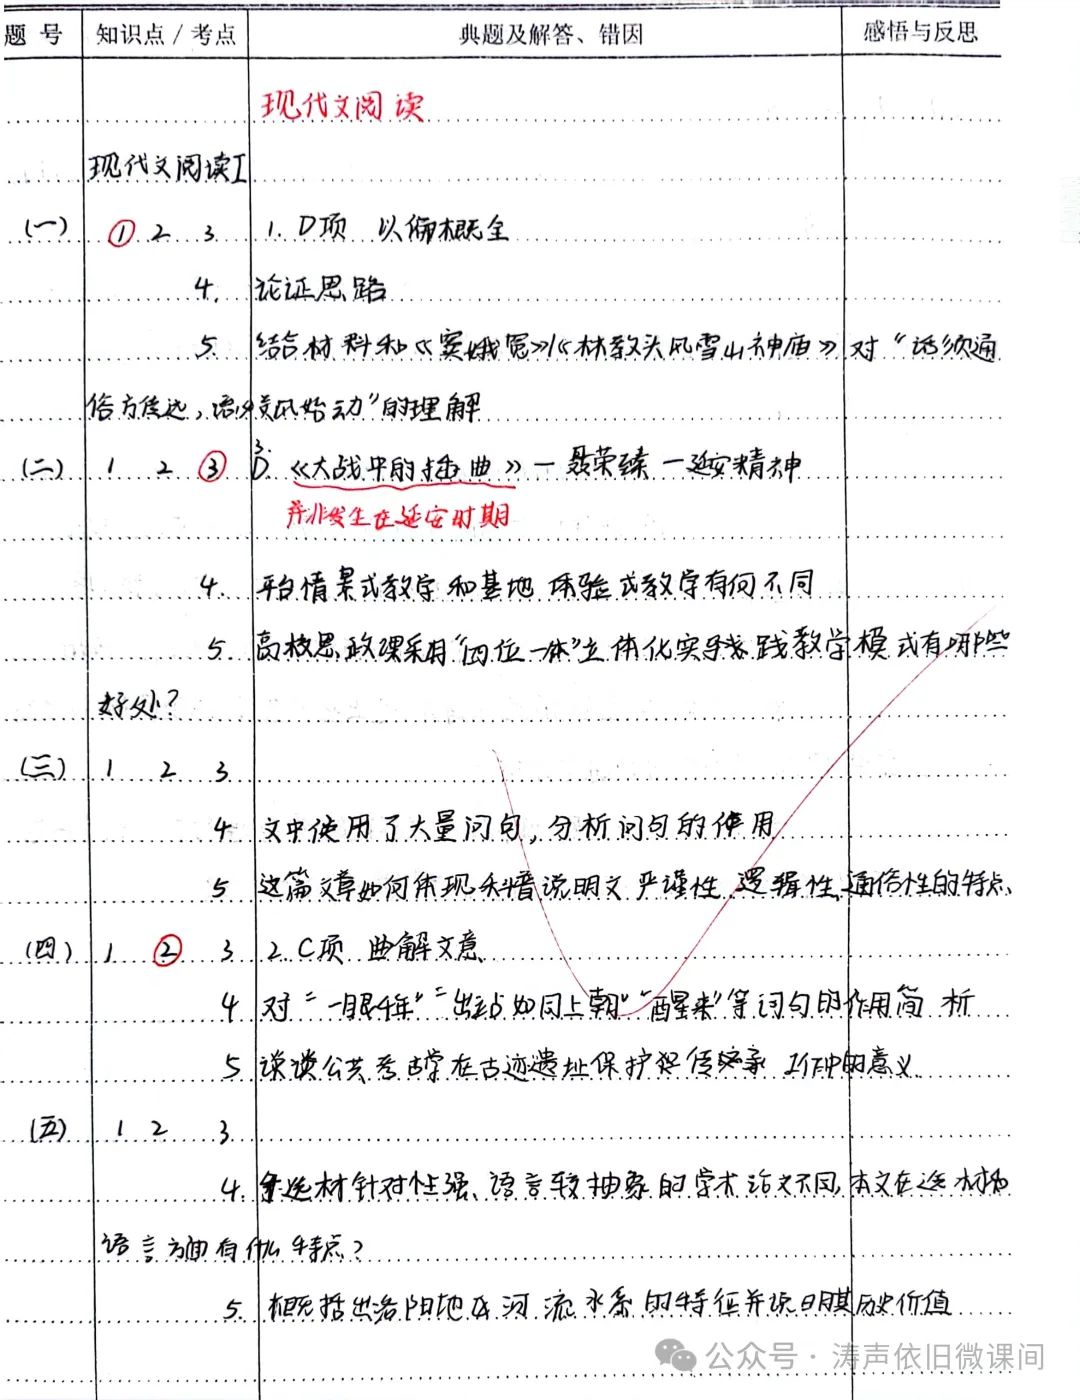 题 号 知识点 / 考点 典题及解答、错因 感悟与反思
现代文阅读
现代文阅读I
(一) ① 2 3 1. D项 以偏概全
4. 论证思路
5. 结合材料和《窦娥冤》/《林教头风雪山神庙》对“话须通
俗方传远，语必关风始动”的理解
(二) 1 2 ③ 3. D. 《大战中的插曲》— 聂荣臻 — 延安精神
并非发生在延安时期
4. 平台情景式教学和基地体验式教学有何不同
5. 高校思政课采用“四位一体”立体化实践教学模式有哪些
好处？
(三) 1 2 3
4 文中使用了大量问句，分析问句的作用
5 这篇文章如何体现科普说明文严谨性、逻辑性、通俗性的特点
(四) 1 ② 3 2. C项 曲解文意
4 对“一眼千年”“出站如同上朝”“醒来”等词句的作用简析
5 谈谈公共考古学在古迹遗址保护和传承工作中的意义
(五) 1 2 3
4. 与选材针对性强、语言较抽象的学术论文不同，本文在选材和
语言方面有什么特点？
5. 概括出洛阳地区河流水系的特征并说明其历史价值
公众号 · 涛声依旧微课间